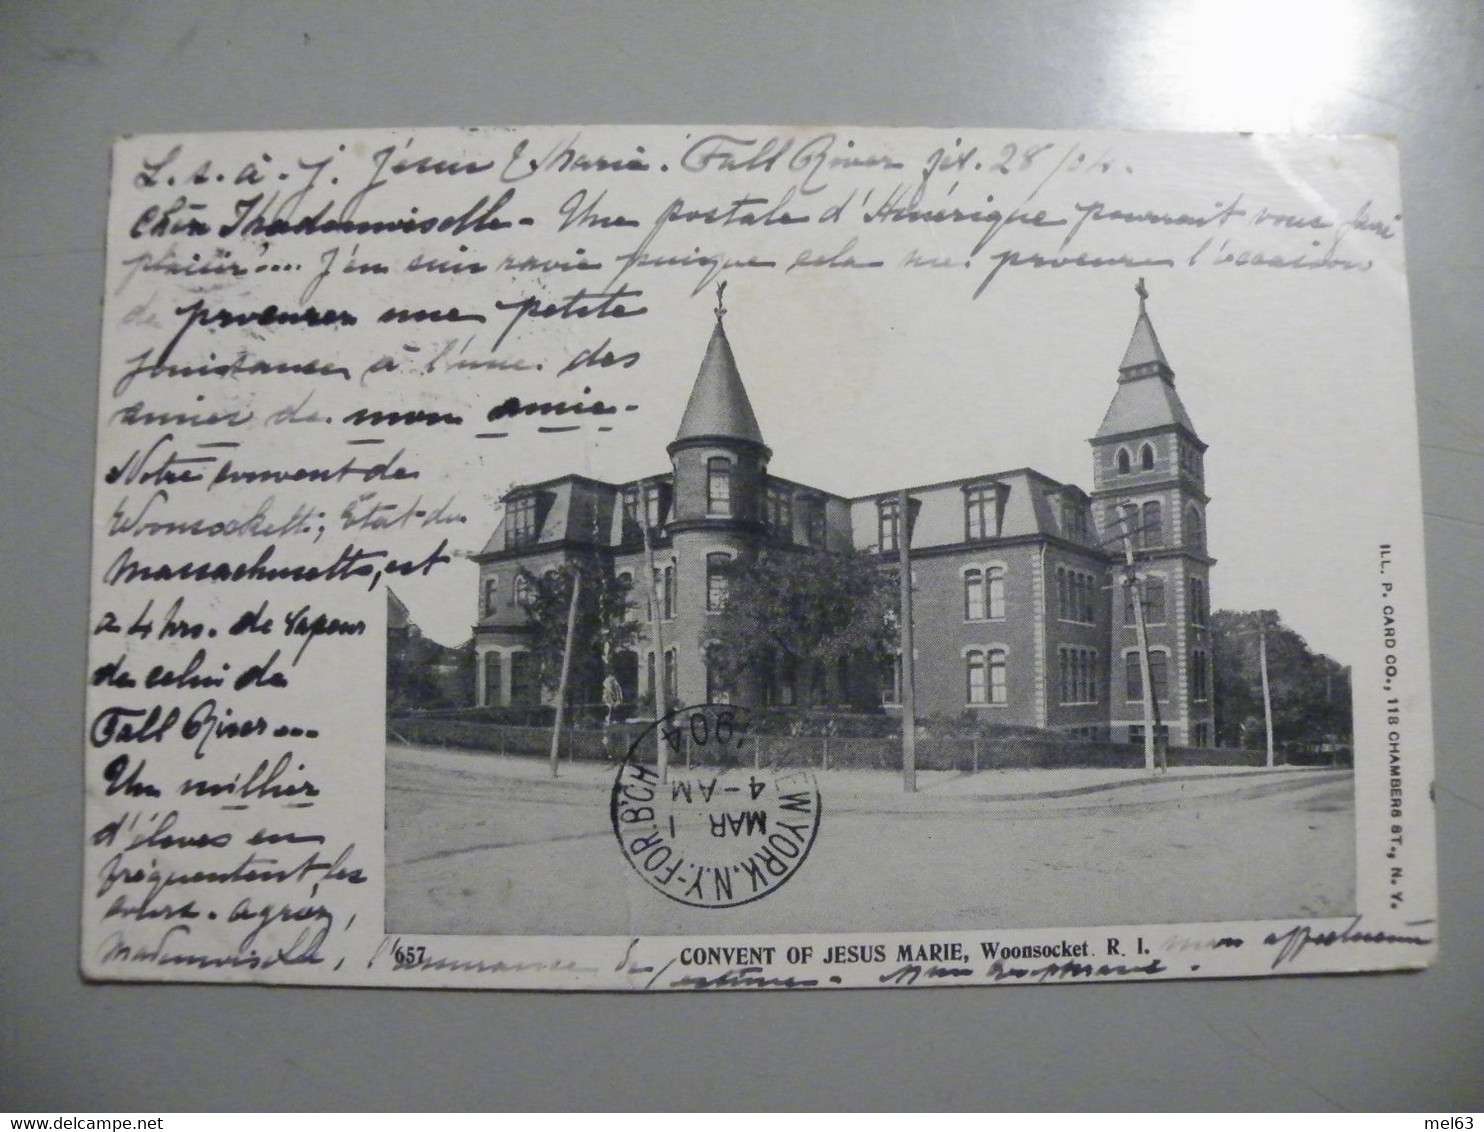 L. s. à. J. Jésus & Marie. Fall River fév. 28/04.
Chère Mademoiselle - Une postale d'Amérique pourrait vous faire
plaisir?... J'en suis ravie puisque cela me procure l'occasion
de procurer une petite
jouissance à l'une des
amies de mon amie.
Notre couvent de
Woonsockett, État du
Massachusetts, est
à 4 hrs. de vapeur
de celui de
Fall River...
Un millier
d'élèves en
fréquentent les
cours. Agréez,
Mademoiselle, l'assurance de mon affectueuse
estime.
657
CONVENT OF JESUS MARIE, Woonsocket. R. I.
ILL. P. CARD CO., 118 CHAMBERS ST., N. Y.
NEW YORK, N.Y.-FOR.B'CH
MAR 1
4-AM
1904
mel63